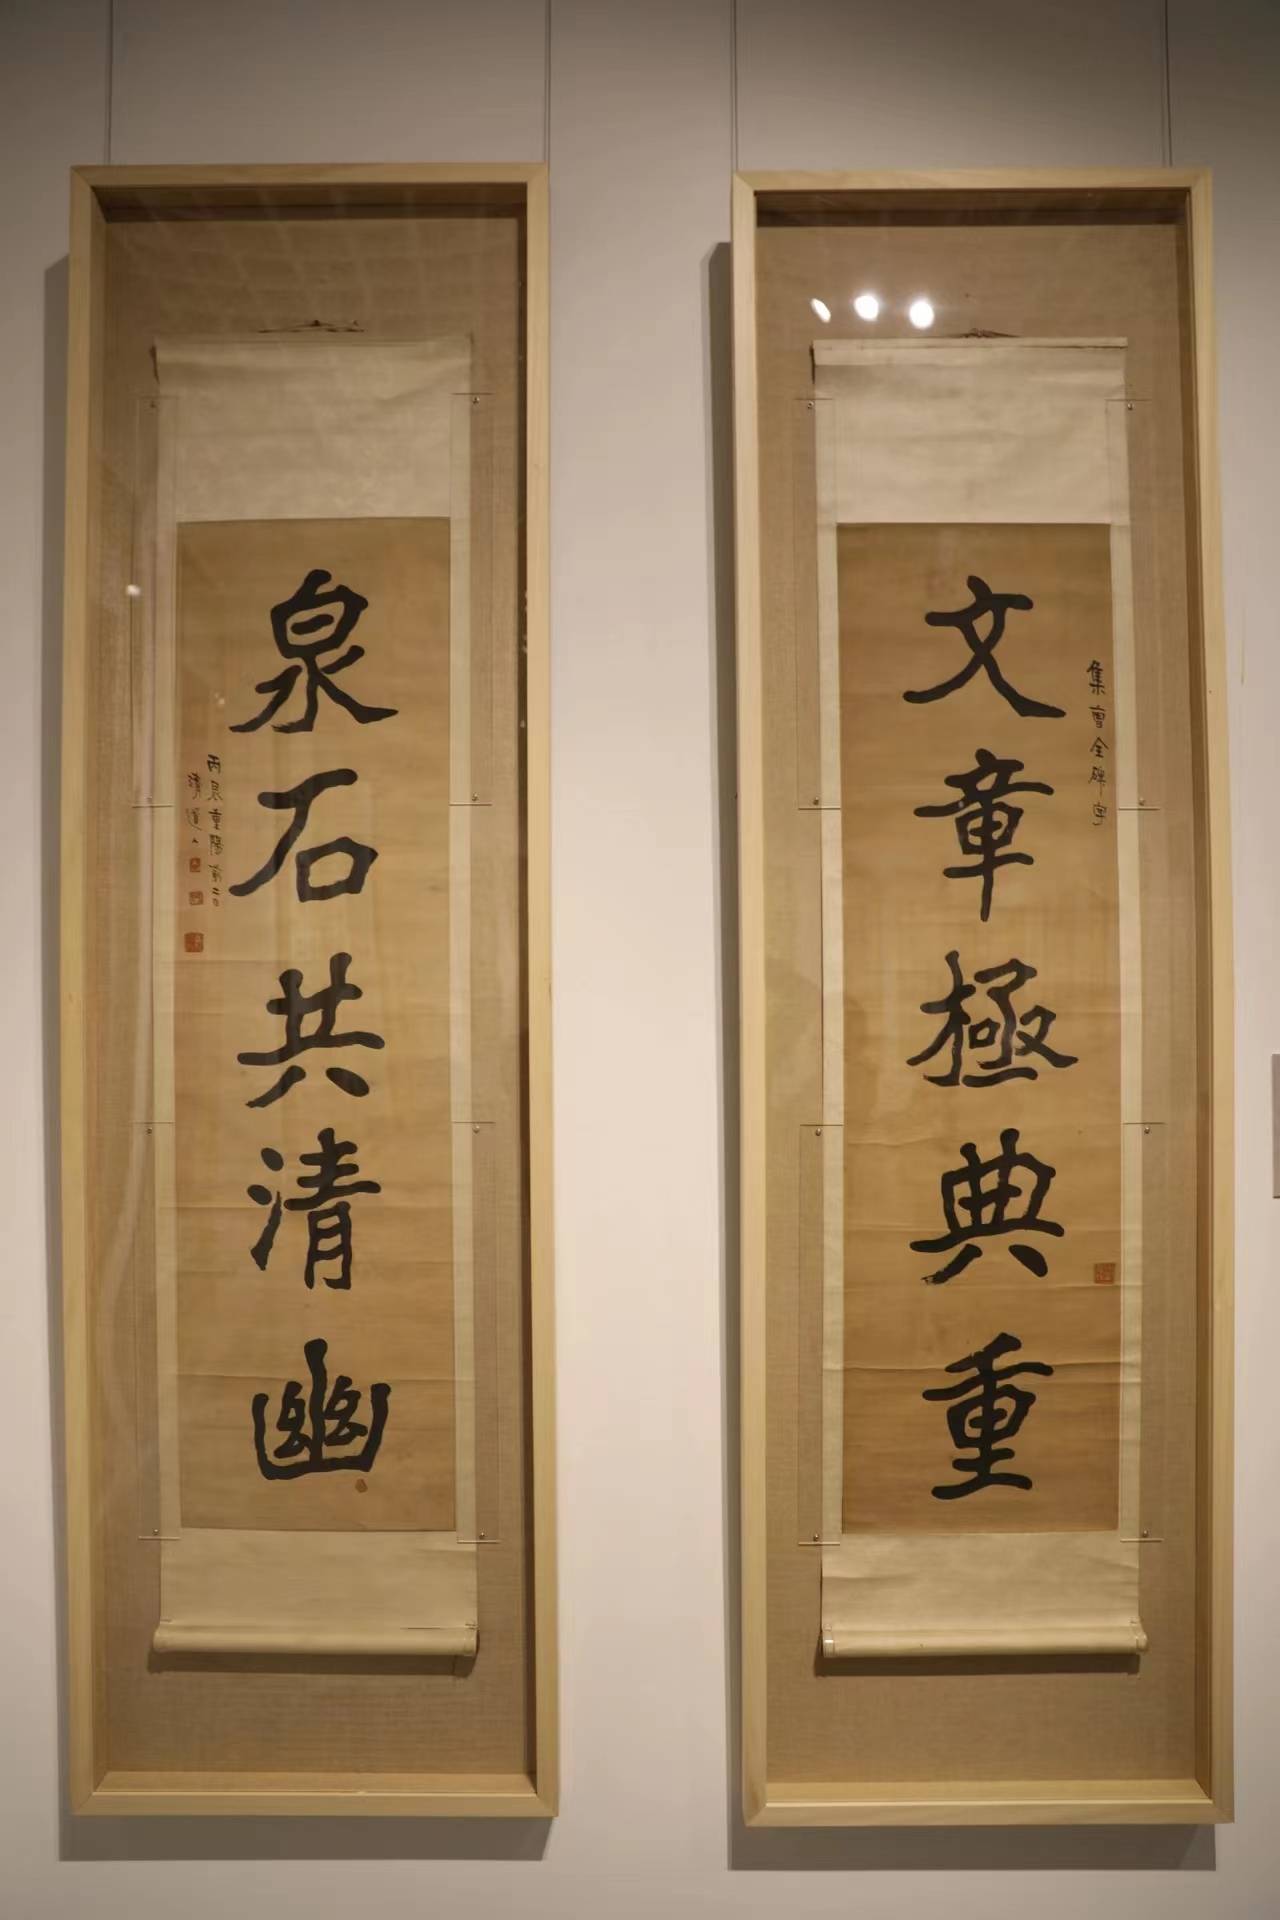 集曹全碑字
文章極典重
泉石共清幽
丙辰重陽前二日
清道人